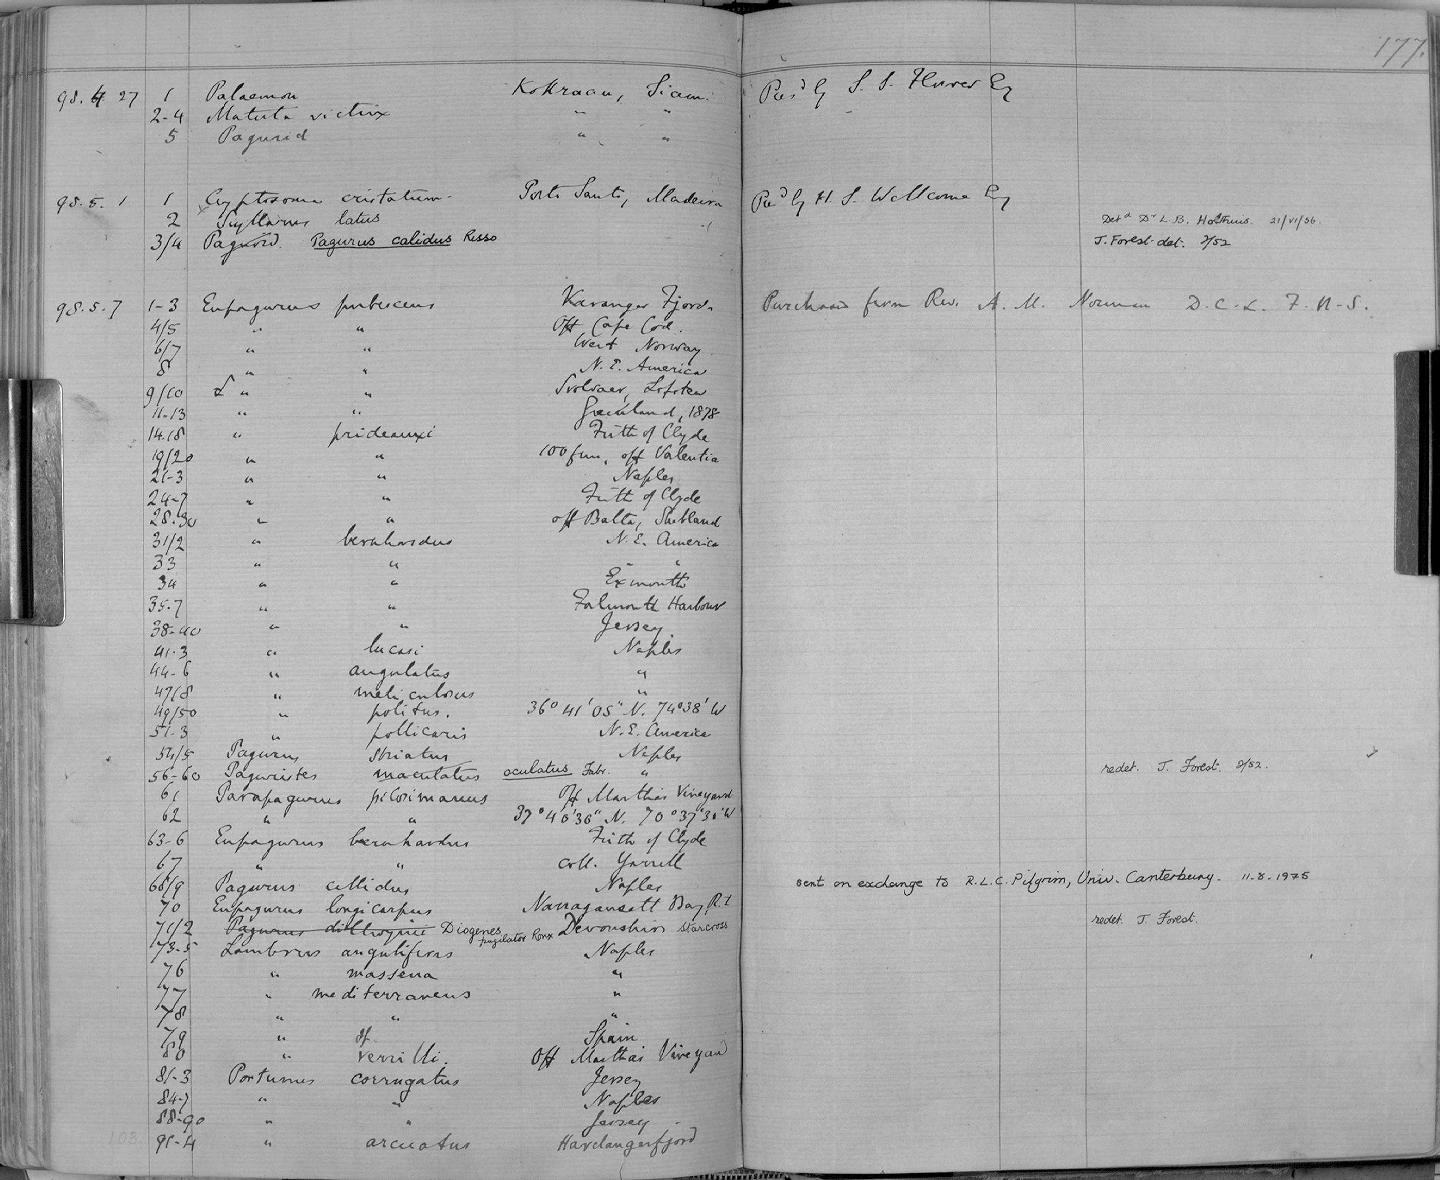 177.
98. 4 27 1 Palaemon Siam. Pres^d by S. S. Flower Esq
2-4 Matuta victrix " "
5 Pagurid " "
98. 5. 1 1 Cryptosoma cristatum Porto Santo, Madeira Pres^d by H. S. Wellcome Esq
2 Scyllarus latus " Det^d D^r L.B. Holthuis. 21/VI/56.
3/4 Pagurid. Pagurus calidus Risso J. Forest det. 9/52
98. 5. 7 1-3 Eupagurus pubescens Fjord. Purchased from Rev. A. M. Norman D.C.L. F.R.S.
4/5 " " Off Cape Cod.
6/7 " " West Norway.
8 " " N. E. America
9/10 " " Svolvaer, Lofoten
11-13 " " Greenland, 1878
14-18 " prideauxi Firth of Clyde
19/20 " " 100 fm, off Valentia
21-3 " " Naples
24-7 " " Firth of Clyde
28-30 " " off Balta, Shetland
31/2 " bernhardus N. E. America
33 " " " "
34 " " Exmouth
35-7 " " Falmouth Harbour
38-40 " " Jersey.
41-3 " lucasi Naples
44-6 " angulatus "
47/8 " meticulosus "
49/50 " politus. 36° 41' 05" N. 74° 38' W
51-3 " pollicaris N. E. America
54/5 Pagurus striatus Naples
56-60 Paguristes maculatus oculatus Fabr. " redet. J. Forest. 9/52.
61 Parapagurus pilosimanus Off Marthas Vineyard
62 " " N. 70° 37' 30" W
63-6 Eupagurus bernhardus Firth of Clyde
67 " " coll. Yarrell
68/9 Pagurus callidus Naples sent on exchange to R.L.C. Pilgrim, Univ. Canterbury. 11.8.1975
70 Eupagurus longicarpus Narragansett Bay, R.I
71/2 Pagurus dillwynii Diogenes pugilator Roux Devonshire Starcross redet. J. Forest.
73-5 Lambrus angulifrons Naples
76 " massena "
77 " mediterraneus "
78 " " "
79 " sp. Spain
80 " verrilli. Off Marthas Vineyard
81-3 Portunus corrugatus Jersey
84-7 " " Naples
88-90 " " Jersey.
91-4 " arcuatus Hardangerfjord
103